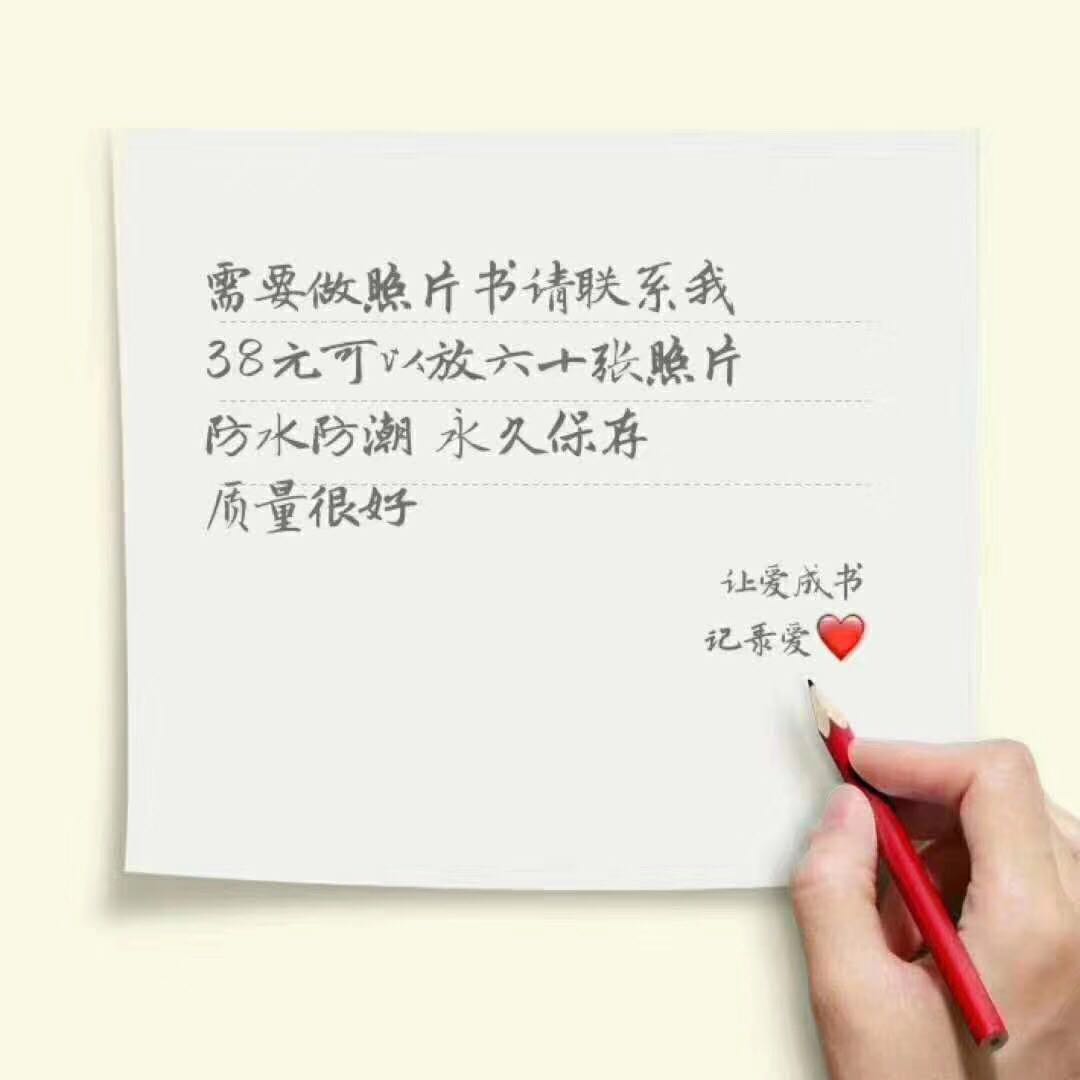 需要做照片书请联系我
38元可以放六十张照片
防水防潮 永久保存
质量很好
让爱成书
记录爱❤️